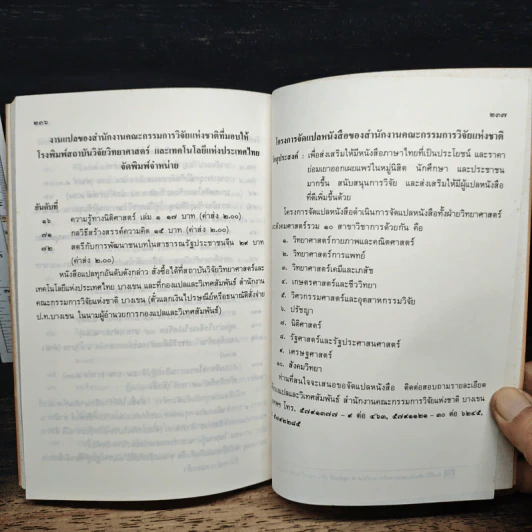 ๒๓๖
งานแปลของสำนักงานคณะกรรมการวิจัยแห่งชาติที่มอบให้
โรงพิมพ์สถาบันวิจัยวิทยาศาสตร์ และเทคโนโลยีแห่งประเทศไทย
จัดพิมพ์จำหน่าย
อันดับที่
๑๖ ความรู้ทางนิติศาสตร์ เล่ม ๑ ๑๗ บาท (ค่าส่ง ๒.๐๐)
๗๑ กลวิธีสร้างสรรค์ความคิด ๑๕ บาท (ค่าส่ง ๒.๐๐)
๗๒ สตรีกับการพัฒนาชนบทในสาธารณรัฐประชาชนจีน ๒๙ บาท
(ค่าส่ง ๒.๐๐)
หนังสือแปลทุกอันดับดังกล่าว สั่งซื้อได้ที่สถาบันวิจัยวิทยาศาสตร์และ
เทคโนโลยีแห่งประเทศไทย บางเขน และที่กองแปลและวิเทศสัมพันธ์ สำนักงาน
คณะกรรมการวิจัยแห่งชาติ บางเขน (ตั๋วแลกเงินไปรษณีย์หรือธนาณัติสั่งจ่าย
ป.ท.บางเขน ในนามผู้อำนวยการกองแปลและวิเทศสัมพันธ์)
๒๓๗
โครงการจัดแปลหนังสือของสำนักงานคณะกรรมการวิจัยแห่งชาติ
วัตถุประสงค์ : เพื่อส่งเสริมให้มีหนังสือภาษาไทยที่เป็นประโยชน์ และราคา
ย่อมเยาออกเผยแพร่ในหมู่นิสิต นักศึกษา และประชาชน
มากขึ้น สนับสนุนการวิจัย และส่งเสริมให้มีผู้แปลหนังสือ
ที่ดีเพิ่มขึ้นด้วย
โครงการจัดแปลหนังสือดำเนินการจัดแปลหนังสือทั้งฝ่ายวิทยาศาสตร์
สังคมศาสตร์รวม ๑๐ สาขาวิชาการด้วยกัน คือ
๑. วิทยาศาสตร์กายภาพและคณิตศาสตร์
๒. วิทยาศาสตร์การแพทย์
๓. วิทยาศาสตร์เคมีและเภสัช
๔. เกษตรศาสตร์และชีววิทยา
๕. วิศวกรรมศาสตร์และอุตสาหกรรมวิจัย
๖. ปรัชญา
๗. นิติศาสตร์
๘. รัฐศาสตร์และรัฐประศาสนศาสตร์
๙. เศรษฐศาสตร์
๑๐. สังคมวิทยา
ท่านที่สนใจจะเสนอขอจัดแปลหนังสือ ติดต่อสอบถามรายละเอียด
แปลและวิเทศสัมพันธ์ สำนักงานคณะกรรมการวิจัยแห่งชาติ บางเขน
โทร. ๕๗๙๑๓๗๗ - ๙ ต่อ ๔๖๓, ๕๗๙๑๑๒๑ - ๓๐ ต่อ ๖๒๔๕,
๕๗๙๒๒๘๕